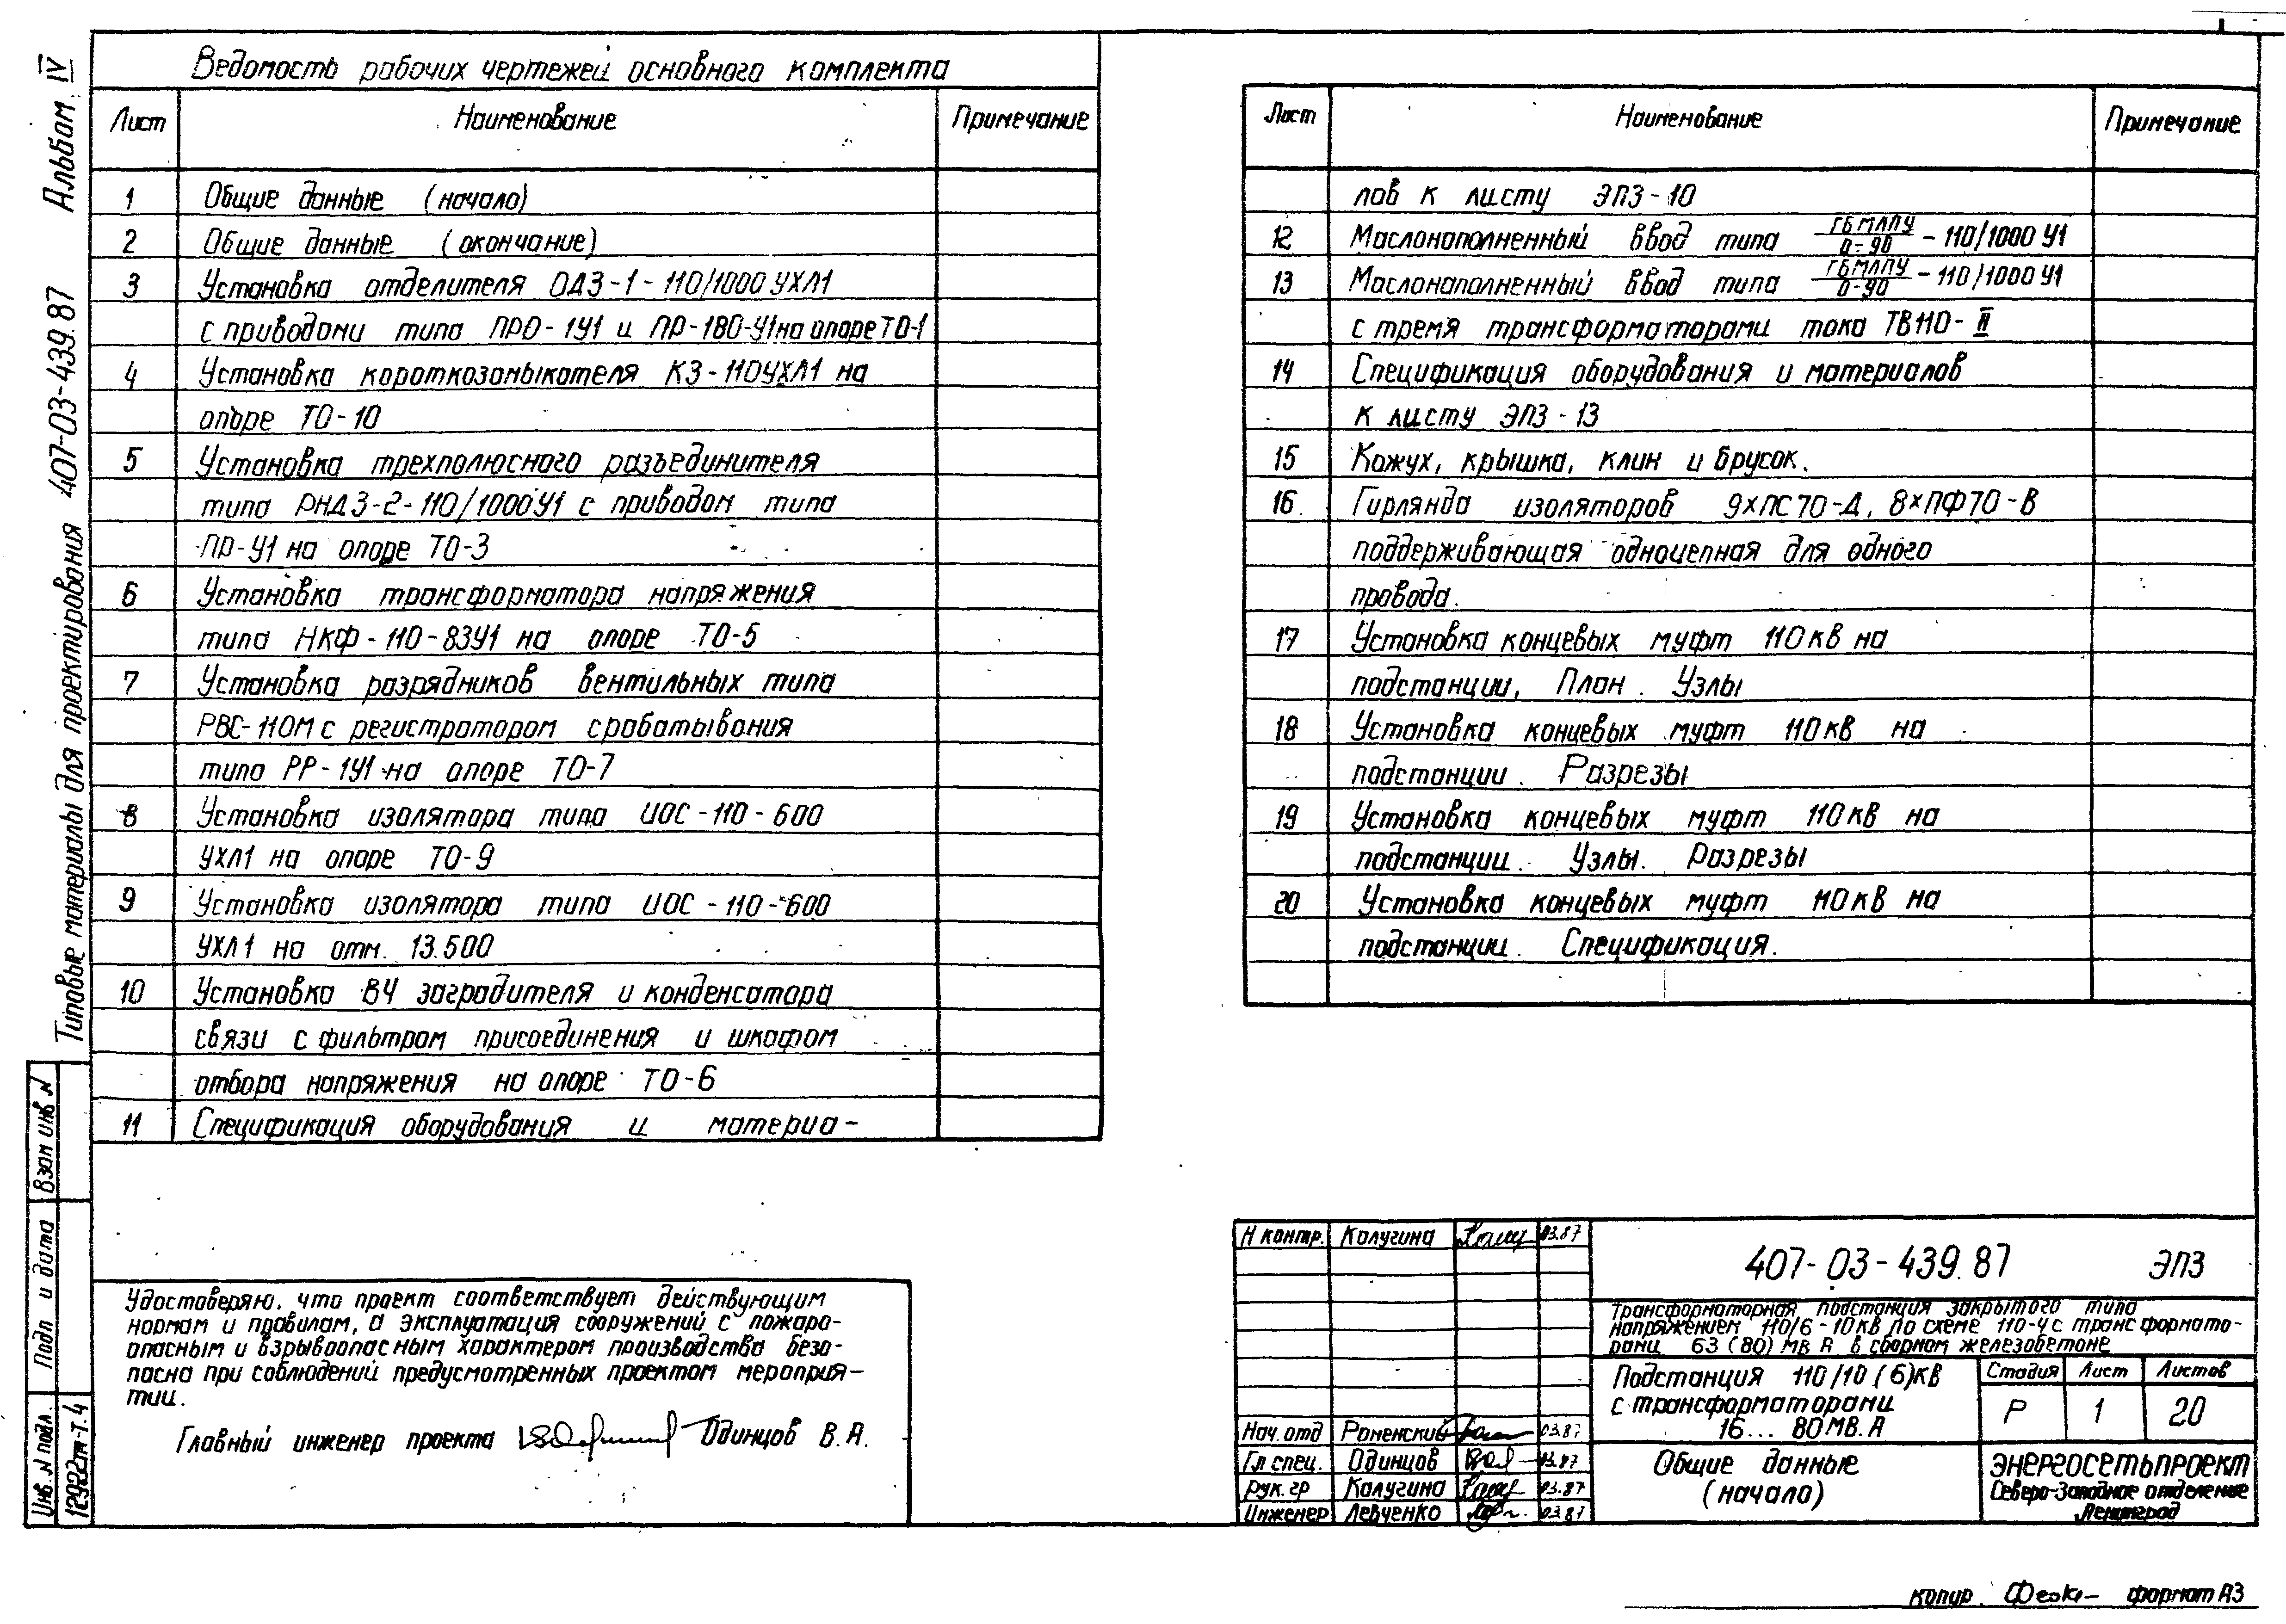 Альбом IV
Типовые материалы для проектирования 407-03-439.87
Ведомость рабочих чертежей основного комплекта
Лист Наименование Примечание
1 Общие данные (начало)
2 Общие данные (окончание)
3 Установка отделителя ОДЗ-1-110/1000 УХЛ1
с приводами типа ПРО-1У1 и ПР-180-У1 на опоре ТО-1
4 Установка короткозамыкателя КЗ-110УХЛ1 на
опоре ТО-10
5 Установка трехполюсного разъединителя
типа РНДЗ-2-110/1000У1 с приводом типа
ПР-У1 на опоре ТО-3
6 Установка трансформатора напряжения
типа НКФ-110-83У1 на опоре ТО-5
7 Установка разрядников вентильных типа
РВС-110М с регистратором срабатывания
типа РР-1У1 на опоре ТО-7
8 Установка изолятора типа ИОС-110-600
УХЛ1 на опоре ТО-9
9 Установка изолятора типа ИОС-110-600
УХЛ1 на отм. 13.500
10 Установка ВЧ заградителя и конденсатора
связи с фильтром присоединения и шкафом
отбора напряжения на опоре ТО-6
11 Спецификация оборудования и материа-
Лист Наименование Примечание
лов к листу ЭПЗ-10
12 Маслонаполненный ввод типа ГБМЛПУ/0-90 - 110/1000 У1
13 Маслонаполненный ввод типа ГБМЛПУ/0-90 - 110/1000 У1
с тремя трансформаторами тока ТВ110-II
14 Спецификация оборудования и материалов
к листу ЭПЗ-13
15 Кожух, крышка, клин и брусок.
16 Гирлянда изоляторов 9хПС70-Д, 8хПФ70-В
поддерживающая одноцепная для одного
провода.
17 Установка концевых муфт 110кВ на
подстанции, План. Узлы
18 Установка концевых муфт 110кВ на
подстанции. Разрезы
19 Установка концевых муфт 110кВ на
подстанции. Узлы. Разрезы
20 Установка концевых муфт 110кВ на
подстанции. Спецификация.
Взам инв N
Подп и дата
Инв. N подл. 12922тм-т.4
Удостоверяю, что проект соответствует действующим
нормам и правилам, а эксплуатация сооружений с пожаро-
опасным и взрывоопасным характером производства безо-
пасна при соблюдений предусмотренных проектом мероприя-
тии.
Главный инженер проекта Одинцов В.А.
Н контр. Калугина 03.87
Нач. отд Роменский 03.87
Гл спец. Одинцов 03.87
Рук. гр Калугина 03.87
Инженер Левченко 03.87
407-03-439.87 ЭПЗ
Трансформаторная подстанция закрытого типа
напряжением 110/6-10кВ по схеме 110-4 с трансформато-
рами 63 (80) МВА в сборном железобетоне
Подстанция 110/10(6)кВ
с трансформаторами
16... 80 МВ.А
Стадия Лист Листов
Р 1 20
Общие данные
(начало)
ЭНЕРГОСЕТЬПРОЕКТ
Северо-Западное отделение
Ленинград
копир. формат А3